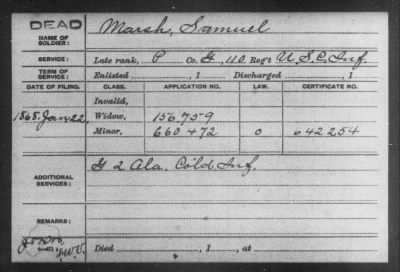 DEAD
NAME OF SOLDIER: Marsh, Samuel
SERVICE: Late rank, P Co. G, 110 Reg't U.S.C. Inf.
TERM OF SERVICE: Enlisted , 1 Discharged , 1
DATE OF FILING. CLASS. APPLICATION NO. LAW. CERTIFICATE NO.
Invalid,
1868. Jan 22, Widow, 156.759
Minor, 660 472 0 642 254
ADDITIONAL SERVICES: G 2 Ala. Col'd Inf.
REMARKS:
Died , 1 , at